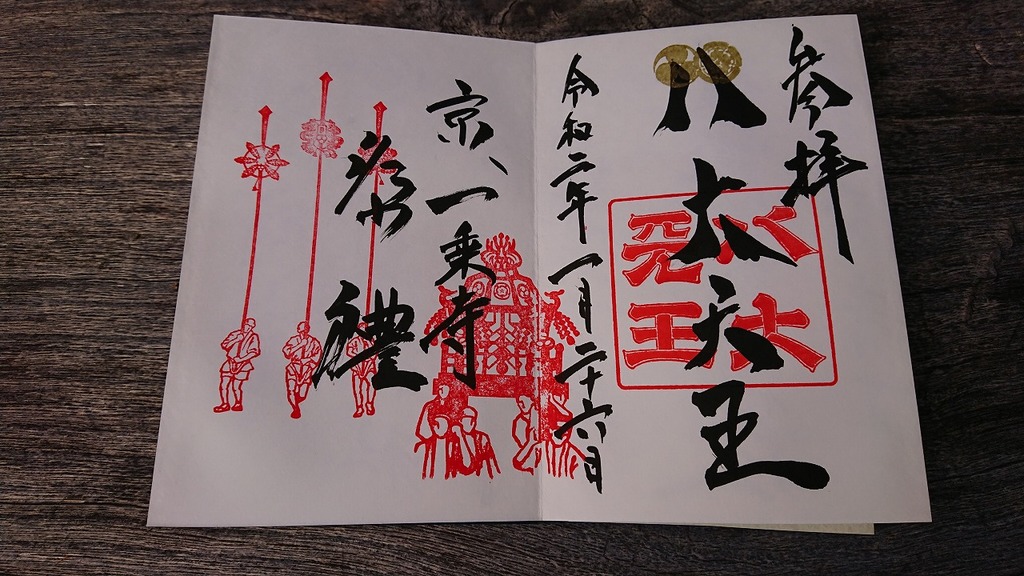 参拝
八大天王
八大
天王
令和二年一月二十六日
京、一乗寺
祭禮